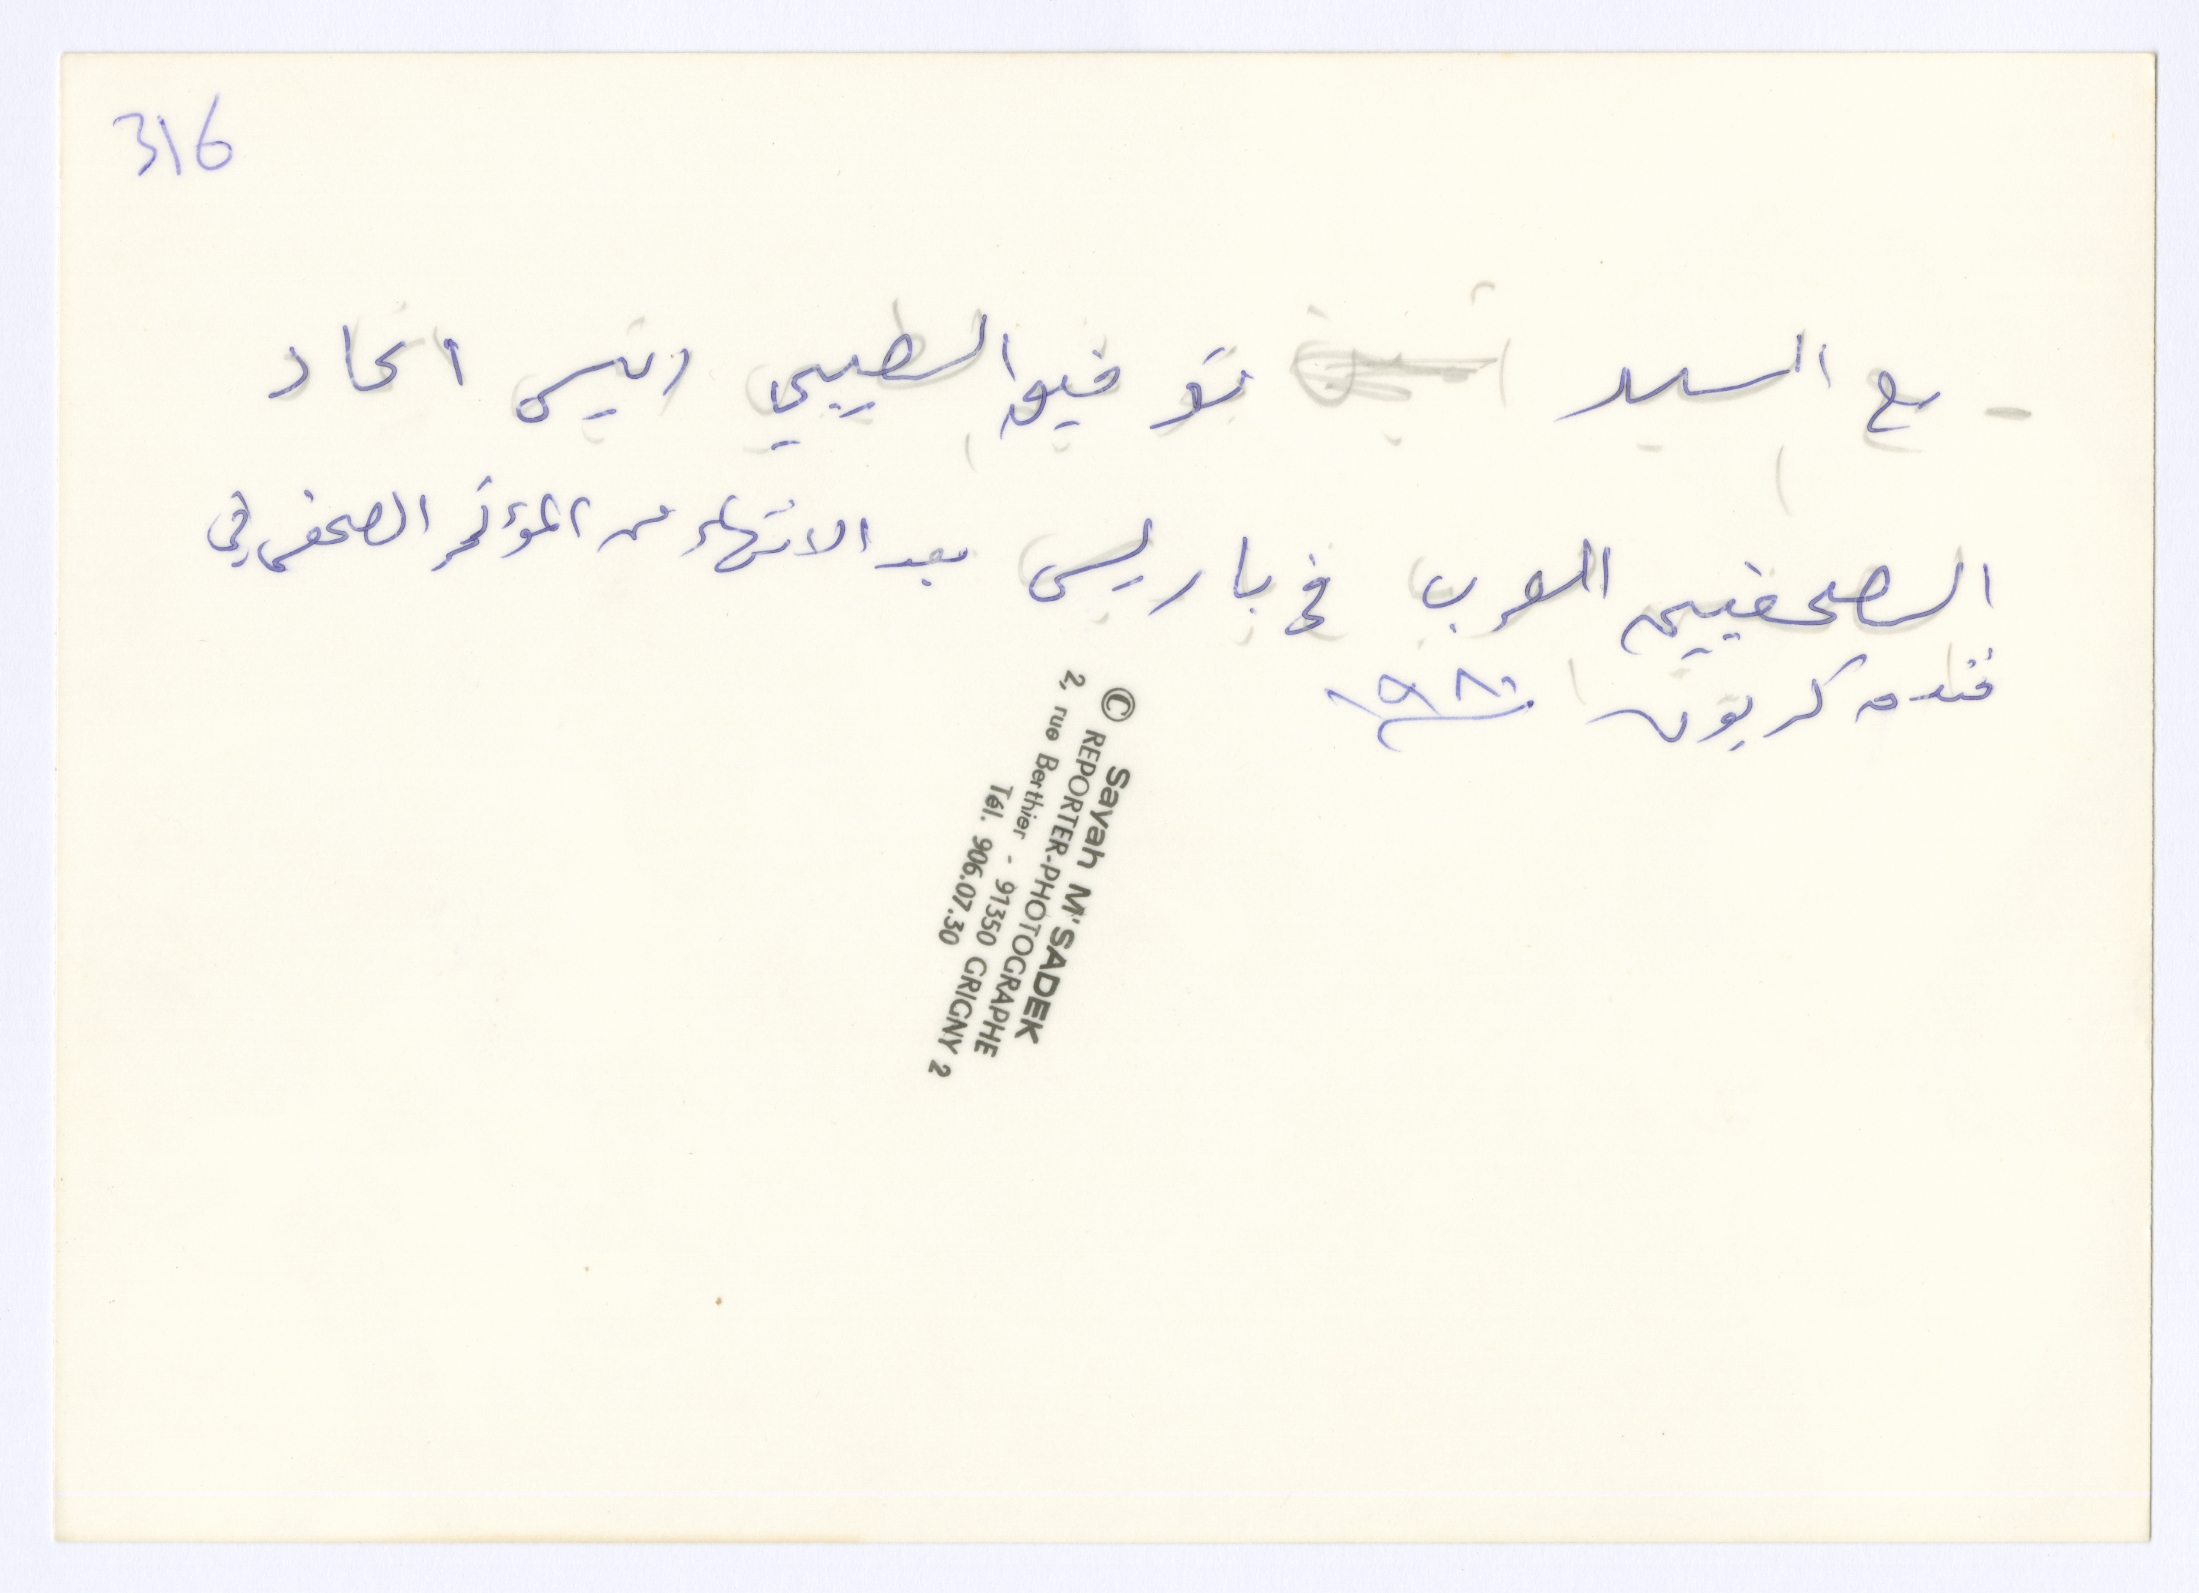 316
- مع السيد توفيق الطيبي رئيس اتحاد
الصحفيين العرب في باريس بعد الانتهاء من المؤتمر الصحفي في
فندق كريون ١٩٨٠
© Sayah M'SADEK
REPORTER-PHOTOGRAPHE
2, rue Berthier - 91350 GRIGNY 2
Tél. 906.07.30